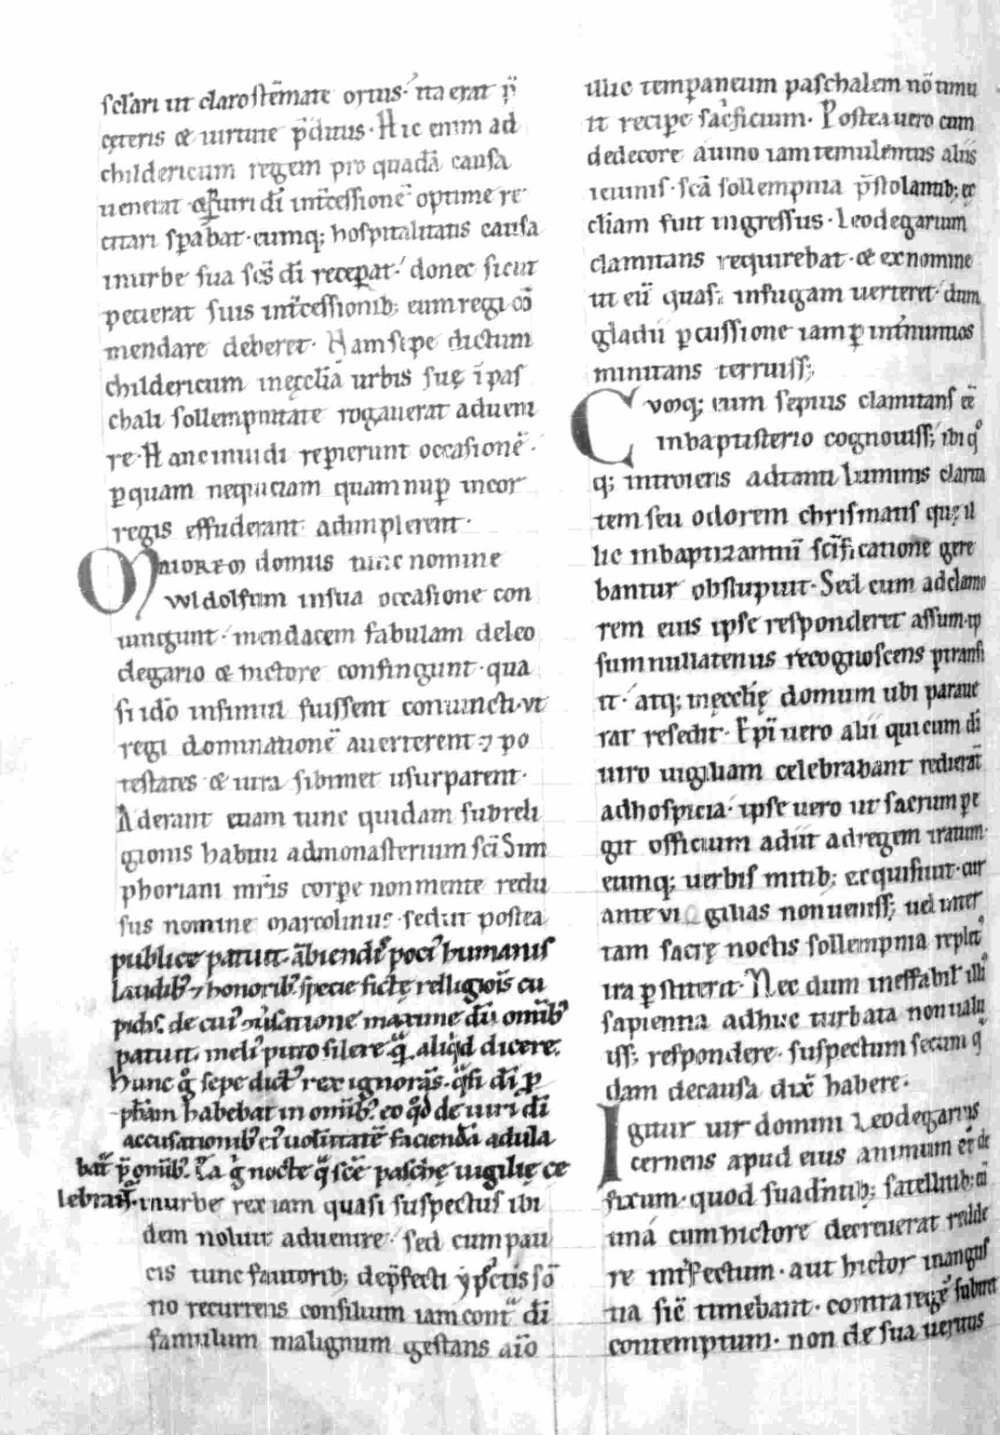 sclari ut claro stemate ortus ita erat p̃
ceteris & uirtute p̃ditus. Hic enim ad
childericum regem pro quadã causa
uenerat & ꝑ uiri dī int̃cessionẽ optime re
citari sꝑabat. cumq; hospitalitatis causa
in urbe sua scs̃ dī receꝑat. donec sicut
petierat suis int̃cessionib; eum regi cõ
mendare deberet. Nam sepe dictum
childericum in ęccl̃ia urbis suę ĩ pas
chali sollempnitate rogauerat adueni
re. Hanc inuidi repierunt occasionẽ.
ꝑ quam nequiciam quam nuꝑ in cor
regis effuderant adimplerent.
Maiorem domus tunc nomine
Wldolfum in sua occasione con
iungunt. mendacem fabulam de leo
degario & hictore confingunt. qua
si idõ in simul fuissent coniuncti. ut
regi dominationẽ auerterent ⁊ po
testates & iura sibimet usurparent.
Aderant etiam tunc quidam sub reli
gionis habitu ad monasterium scī Sim
phoriani mr̃is corꝑe non mente reclu
sus nomine marcolinus. sed ut postea
publice patuit. ãbiendi poci' humanis
laudib' ⁊ honorib' specie fictę relligiõis cu
pid'. de cui' maxime dum omĩb'
patuit. meli' puto silere q̃ aliqd dicere.
Hunc g̊ sepe dict' rex ignorãs. q̃si dī ꝓ
ph̃am habebat in omĩb'. eo qd̊ de uiri dī
accusationib' ei' uolũtatẽ faciendã adula
bat̃ p̃ omĩb'. Ea g̊ nocte q̃ sc̃e paschę uigilię ce
lebrant̃ in urbe rex iam quasi suspectus ibi
dem noluit aduenire. sed cum pau
cis tunc fautorib; dep̃fecti
no recurrens consilium iam cont̃ dī
famulum malignum gestans aĩo
illic temꝑaneum paschalem nõ timu
it recipe sac̃ficium. Postea uero cum
dedecore a uino iam temulentus aliis
ieiunis. scã sollempnia p̃stolantib; ec
cliam fuit ingressus. Leodegarium
clamitans requirebat. & ex nomine
ut eũ quasi in fugam uerteret. dum
gladii ꝑcussione iam ꝑ int̃nuntios
minitans terruiss;
Cumq; eum sepius clamitans eẽ
in baptisterio cognouiss; ibiq̊
q; introiens ad tanti luminis clarita
tem seu odorem chrismatis quę il
lic in baptizantiũ sc̃ificatione gere
bantur obstupuit. Sed cum ad clamo
rem eius ipse responderet assum. ip
sum nullatenus recognoscens ꝑtransi
it. atq; in ęccl̃ię domum ubi paraue
rat resedit. Ep̃i uero alii qui cum dī
uiro uigiliam celebrabant redierãt
ad hospicia. ipse uero ut sacrum pe
git officium adiit ad regem iratum.
eumq; uerbis mitib; exquisiuit. cur
ante vigilias non ueniss; uel inter
tam sacrę noctis sollempnia replet̃
ira ꝑstiterit. Nec dum ineffabil' illi'
sapientia adhuc turbata non ualu
iss; respondere. suspectum secum q̃
dam de causa dix̃ habere.
Igitur uir domini Leodegarius
cernens apud eius animum ẽe de
fixum. quod suadentib; satellitib; eũ
una cum hictore decreuerat redde
re int̃fectum. aut hictor in angus
tia sic̃ timebant. contra regẽ subiret
contemptum. non de sua uerius